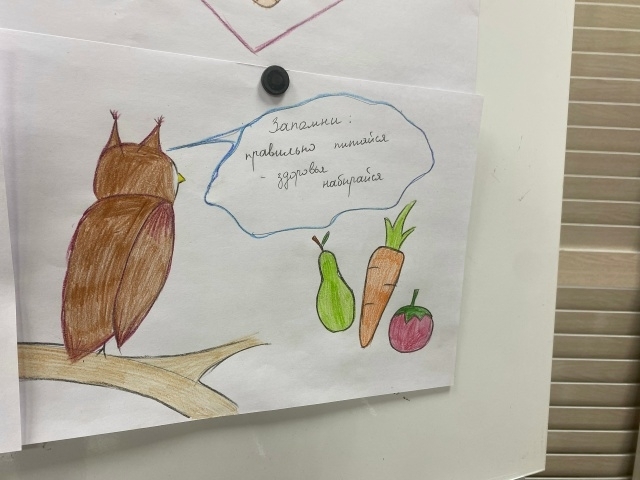 Запомни:
правильно питайся
- здоровья
набирайся